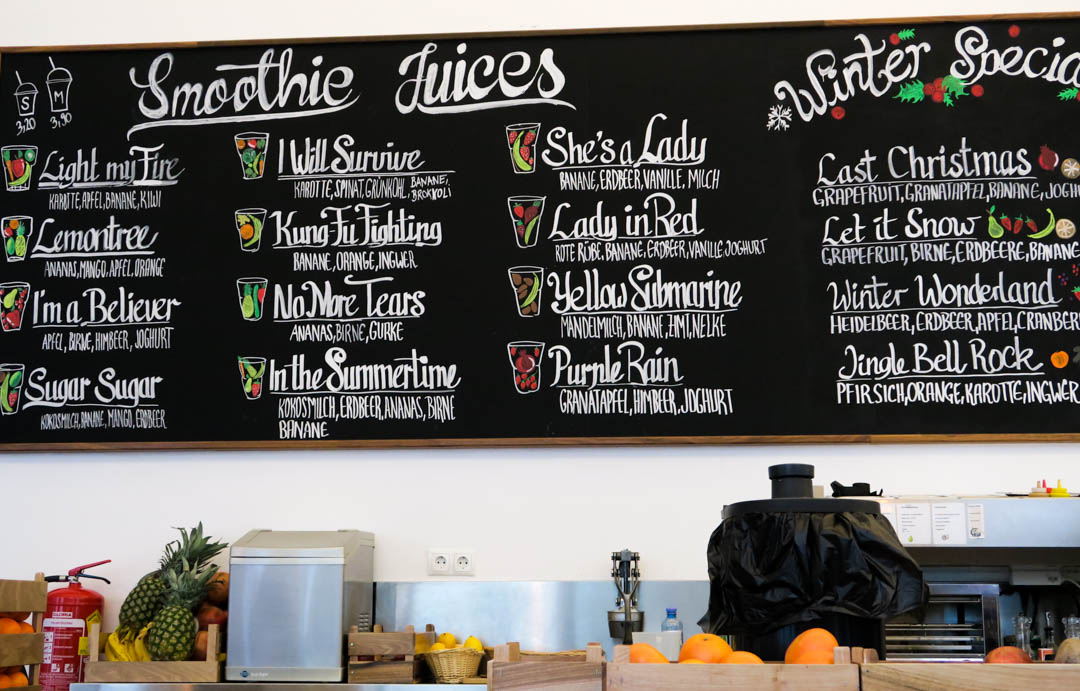 S M
3,20 3,90
Smoothie Juices
Light my Fire
KAROTTE, APFEL, BANANE, KIWI
Lemontree
ANANAS, MANGO, APFEL, ORANGE
I'm a Believer
APFEL, BIRNE, HIMBEER, JOGHURT
Sugar Sugar
KOKOSMILCH, BANANE, MANGO, ERDBEER
I Will Survive
KAROTTE, SPINAT, GRÜNKOHL, BANANE,
BROKKOLI
Kung-Fu Fighting
BANANE, ORANGE, INGWER
No More Tears
ANANAS, BIRNE, GURKE
In the Summertime
KOKOSMILCH, ERDBEER, ANANAS, BIRNE
BANANE
She's a Lady
BANANE, ERDBEER, VANILLE, MILCH
Lady in Red
ROTE RÜBE, BANANE, ERDBEER, VANILLE, JOGHURT
Yellow Submarine
MANDELMILCH, BANANE, ZIMT, NELKE
Purple Rain
GRANATAPFEL, HIMBEER, JOGHURT
Winter Specia
Last Christmas
GRAPEFRUIT, GRANATAPFEL, BANANE, JOGHU
Let it Snow
GRAPEFRUIT, BIRNE, ERDBEERE, BANANE
Winter Wonderland
HEIDELBEER, ERDBEER, APFEL, CRANBER
Jingle Bell Rock
PFIRSICH, ORANGE, KAROTTE, INGWER